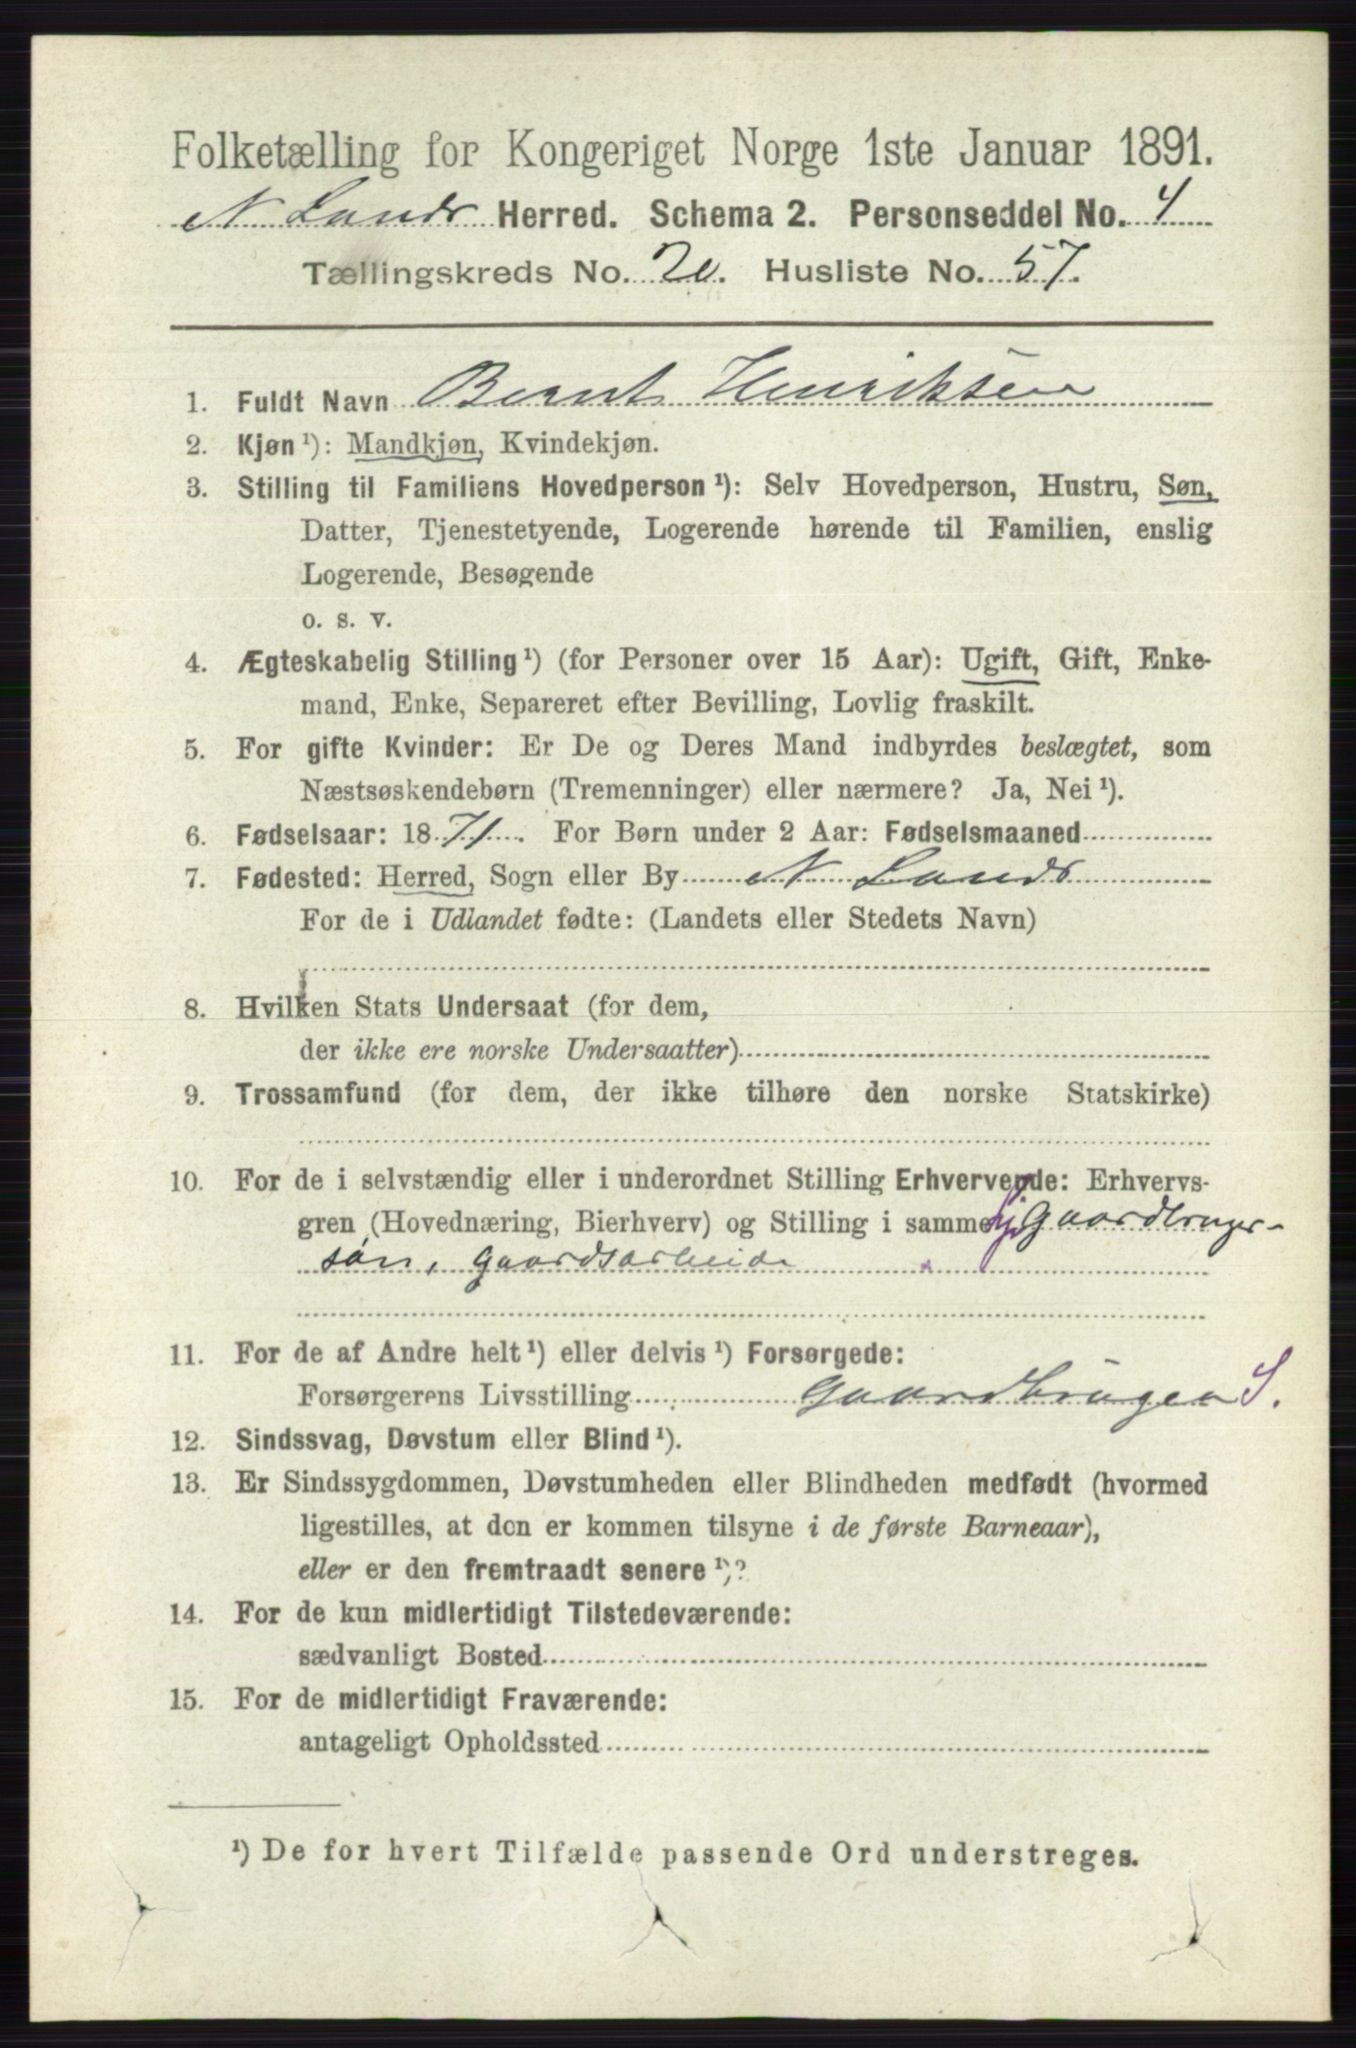 Folketælling for Kongeriget Norge 1ste Januar 1891.
N Lands Herred. Schema 2. Personseddel No. 4
Tællingskreds No. 20. Husliste No. 57.
1. Fuldt Navn Bernt Henriksen
2. Kjøn ¹): Mandkjøn, Kvindekjøn.
3. Stilling til Familiens Hovedperson ¹): Selv Hovedperson, Hustru, Søn,
Datter, Tjenestetyende, Logerende hørende til Familien, enslig
Logerende, Besøgende
o. s. v.
4. Ægteskabelig Stilling ¹) (for Personer over 15 Aar): Ugift, Gift, Enke-
mand, Enke, Separeret efter Bevilling, Lovlig fraskilt.
5. For gifte Kvinder: Er De og Deres Mand indbyrdes beslægtet, som
Næstsøskendebørn (Tremenninger) eller nærmere? Ja, Nei ¹).
6. Fødselsaar: 1871. For Børn under 2 Aar: Fødselsmaaned
7. Fødested: Herred, Sogn eller By N Lands
For de i Udlandet fødte: (Landets eller Stedets Navn)
8. Hvilken Stats Undersaat (for dem,
der ikke ere norske Undersaatter)
9. Trossamfund (for dem, der ikke tilhøre den norske Statskirke)
10. For de i selvstændig eller i underordnet Stilling Erhvervende: Erhvervs-
gren (Hovednæring, Bierhverv) og Stilling i samme Gaardbruger-
søn, Gaardsarbeide
11. For de af Andre helt ¹) eller delvis ¹) Forsørgede:
Forsørgerens Livsstilling Gaardbruger S.
12. Sindssvag, Døvstum eller Blind ¹).
13. Er Sindssygdommen, Døvstumheden eller Blindheden medfødt (hvormed
ligestilles, at den er kommen tilsyne i de første Barneaar),
eller er den fremtraadt senere ¹)?
14. For de kun midlertidigt Tilstedeværende:
sædvanligt Bosted
15. For de midlertidigt Fraværende:
antageligt Opholdssted
¹) De for hvert Tilfælde passende Ord understreges.